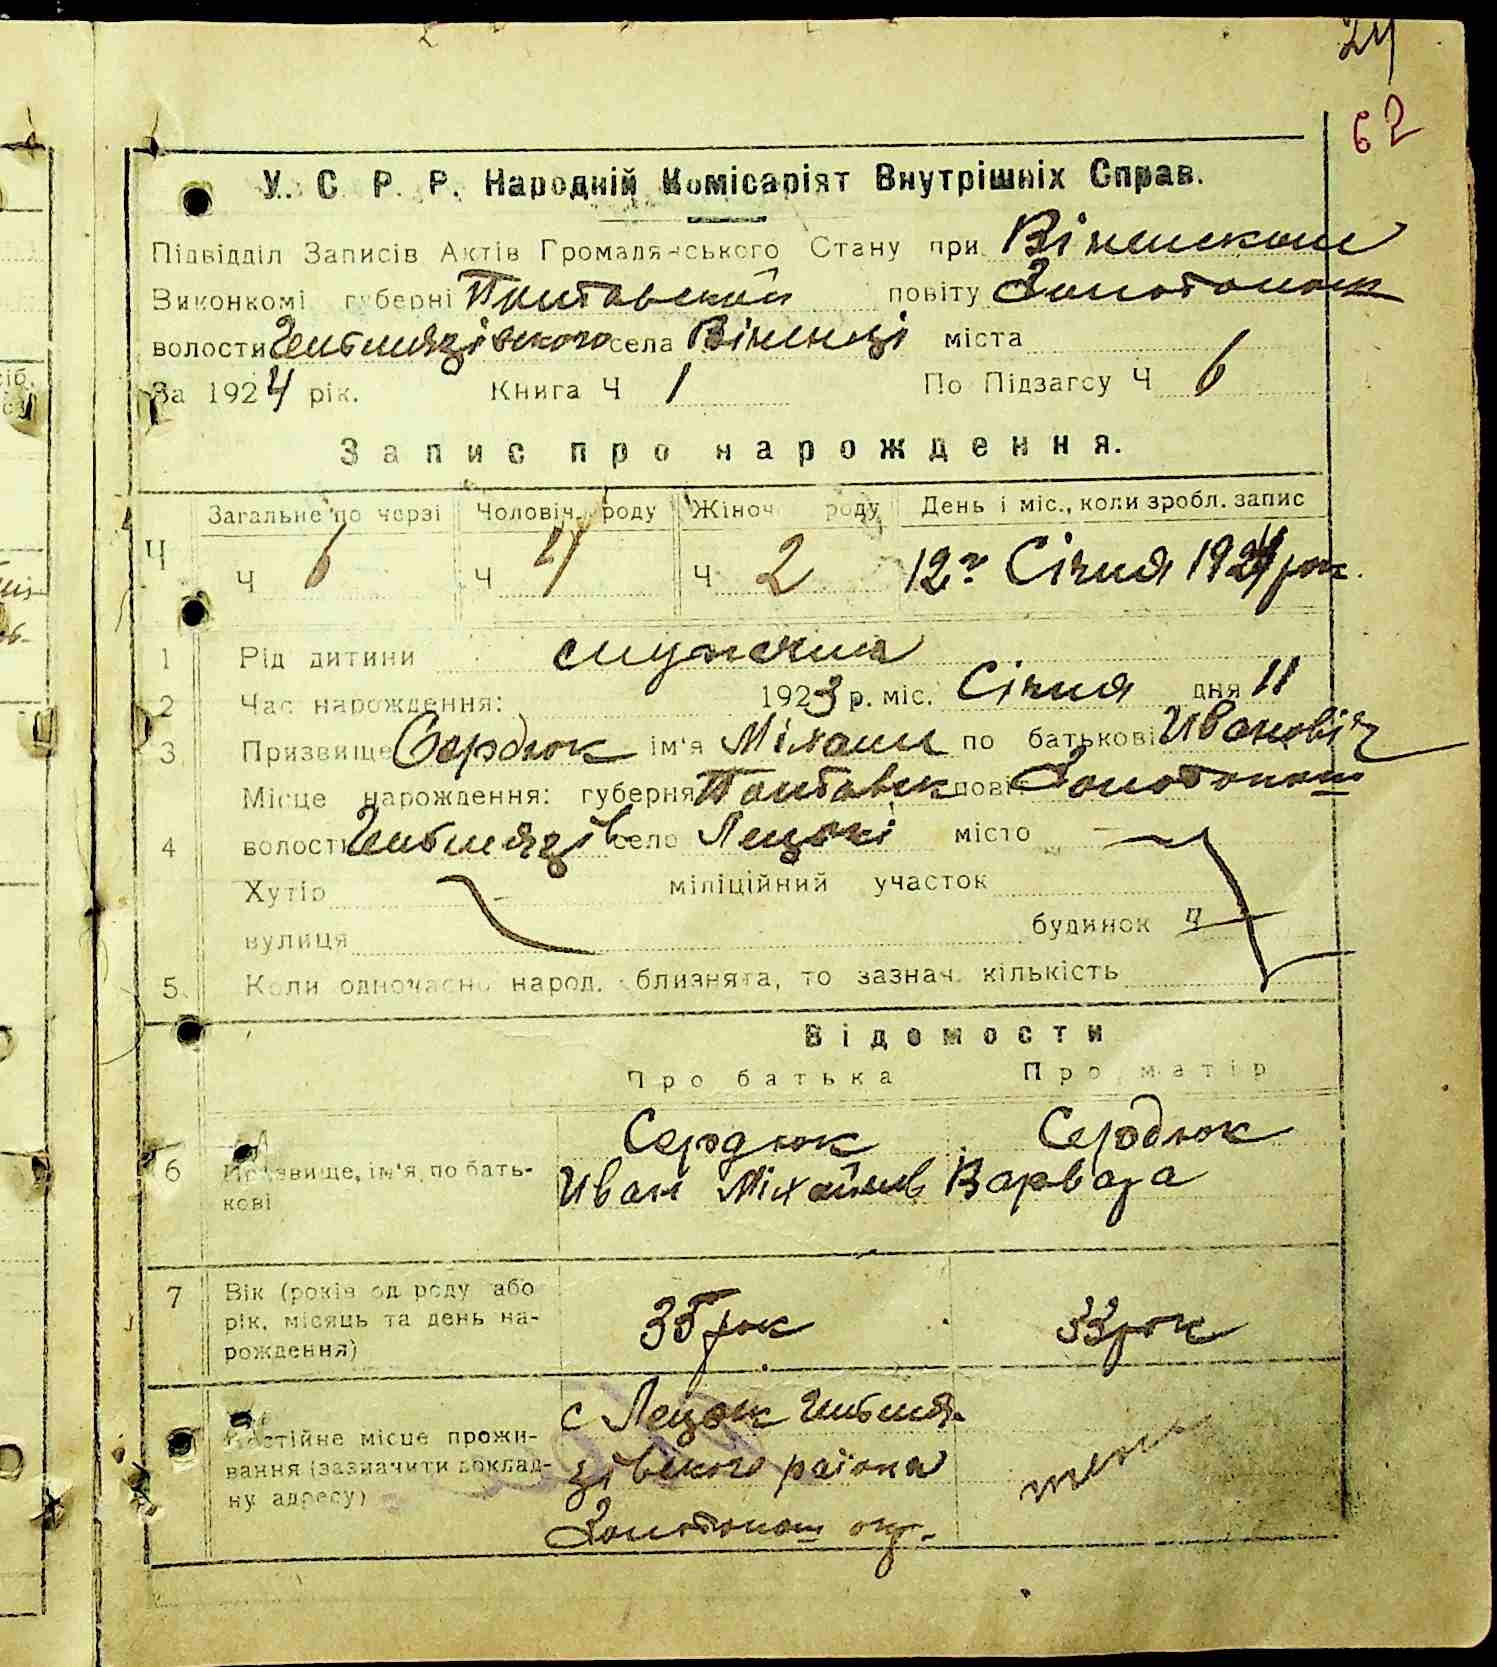 24
62
У. С. Р. Р. Народній Комісаріят Внутрішніх Справ.
Підвідділ Записів Актів Громадянського Стану при Вінецьком
Виконкомі губерні Полтавской повіту Золотонош
волости Гельмязівского села Вінинці міста
За 1924 рік. Книга Ч 1 По Підзагсу Ч 6
Запис про народження.
Загальне по черзі Чоловіч. роду Жіноч роду День і міс., коли зробл. запис
Ч Ч 6 Ч 4 Ч 2 12го Січня 1924 рок.
1 Рід дитини
2 Час народження: 1923 р. міс. Січня дня 11
3 Призвище Сердюк ім'я Міхаил по батькові Ивановіч
Місце народження: губерня Полтавск повіт Золотонош
4 волость Гельмязів село Лецькі місто
Хутір міліційний участок
вулиця будинок ч
5 Коли одночасно народ. близнята, то зазнач. кількість
Відомости
Про батька Про матір
Сердюк Сердюк
6 Призвище, ім'я, по бать- Иван Міхайлов Варвара
кові
7 Вік (років од роду або
рік, місяць та день на- 35 рок 33 рок
рождення)
с Лецьк Гельмя-
Постійне місце прожи-
вання (зазначити доклад- зівского раіона
ну адресу)
Золотонош окр.